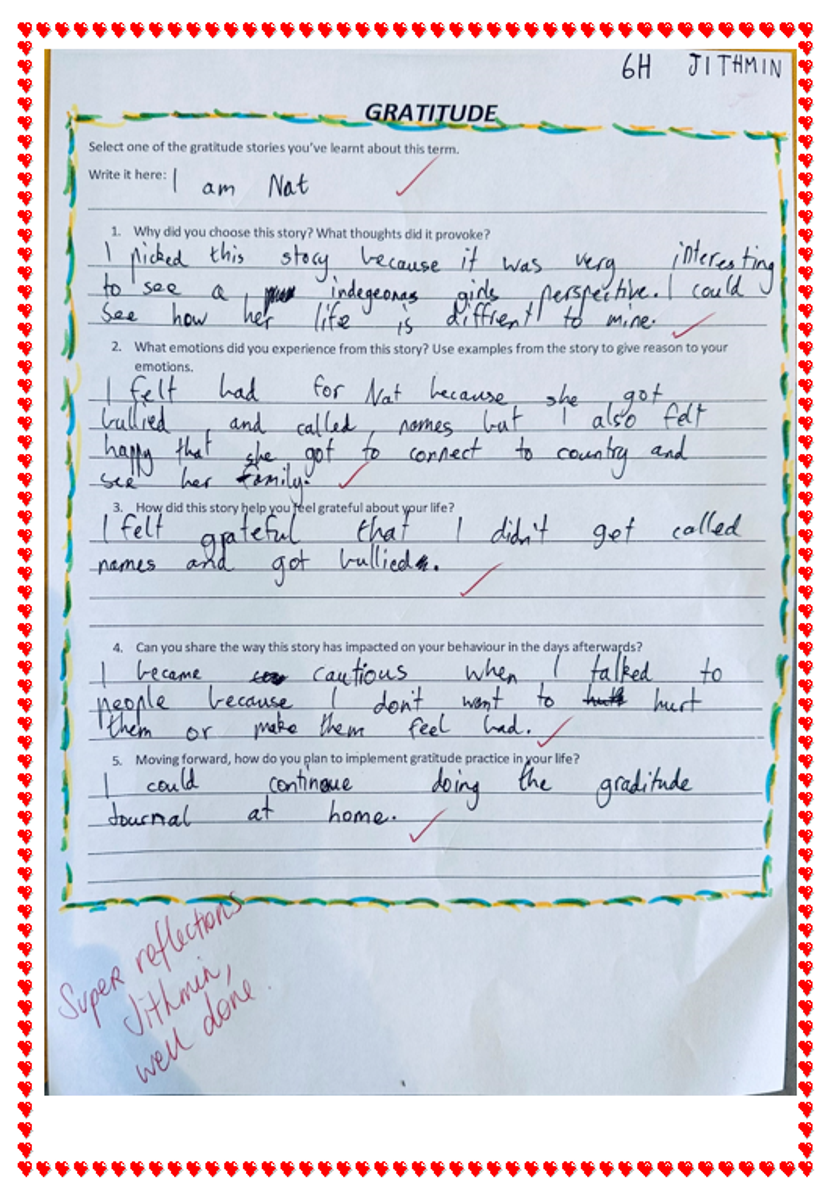 6H JITHMIN
GRATITUDE
Select one of the gratitude stories you've learnt about this term.
Write it here: I am Nat
1. Why did you choose this story? What thoughts did it provoke?
I picked this story because it was very interesting
to see a indegeonas girls perspective. I could
see how her life is diffrent to mine.
2. What emotions did you experience from this story? Use examples from the story to give reason to your
emotions.
I felt bad for Nat because she got
bullied and called names but I also felt
happy that she got to connect to country and
see her family.
3. How did this story help you feel grateful about your life?
I felt grateful that I didn't get called
names and got bullied.
4. Can you share the way this story has impacted on your behaviour in the days afterwards?
I became cautious when I talked to
people because I don't want to hurt
them or make them feel bad.
5. Moving forward, how do you plan to implement gratitude practice in your life?
I could continoue doing the graditude
Journal at home.
Super reflections
Jithmin,
well done.